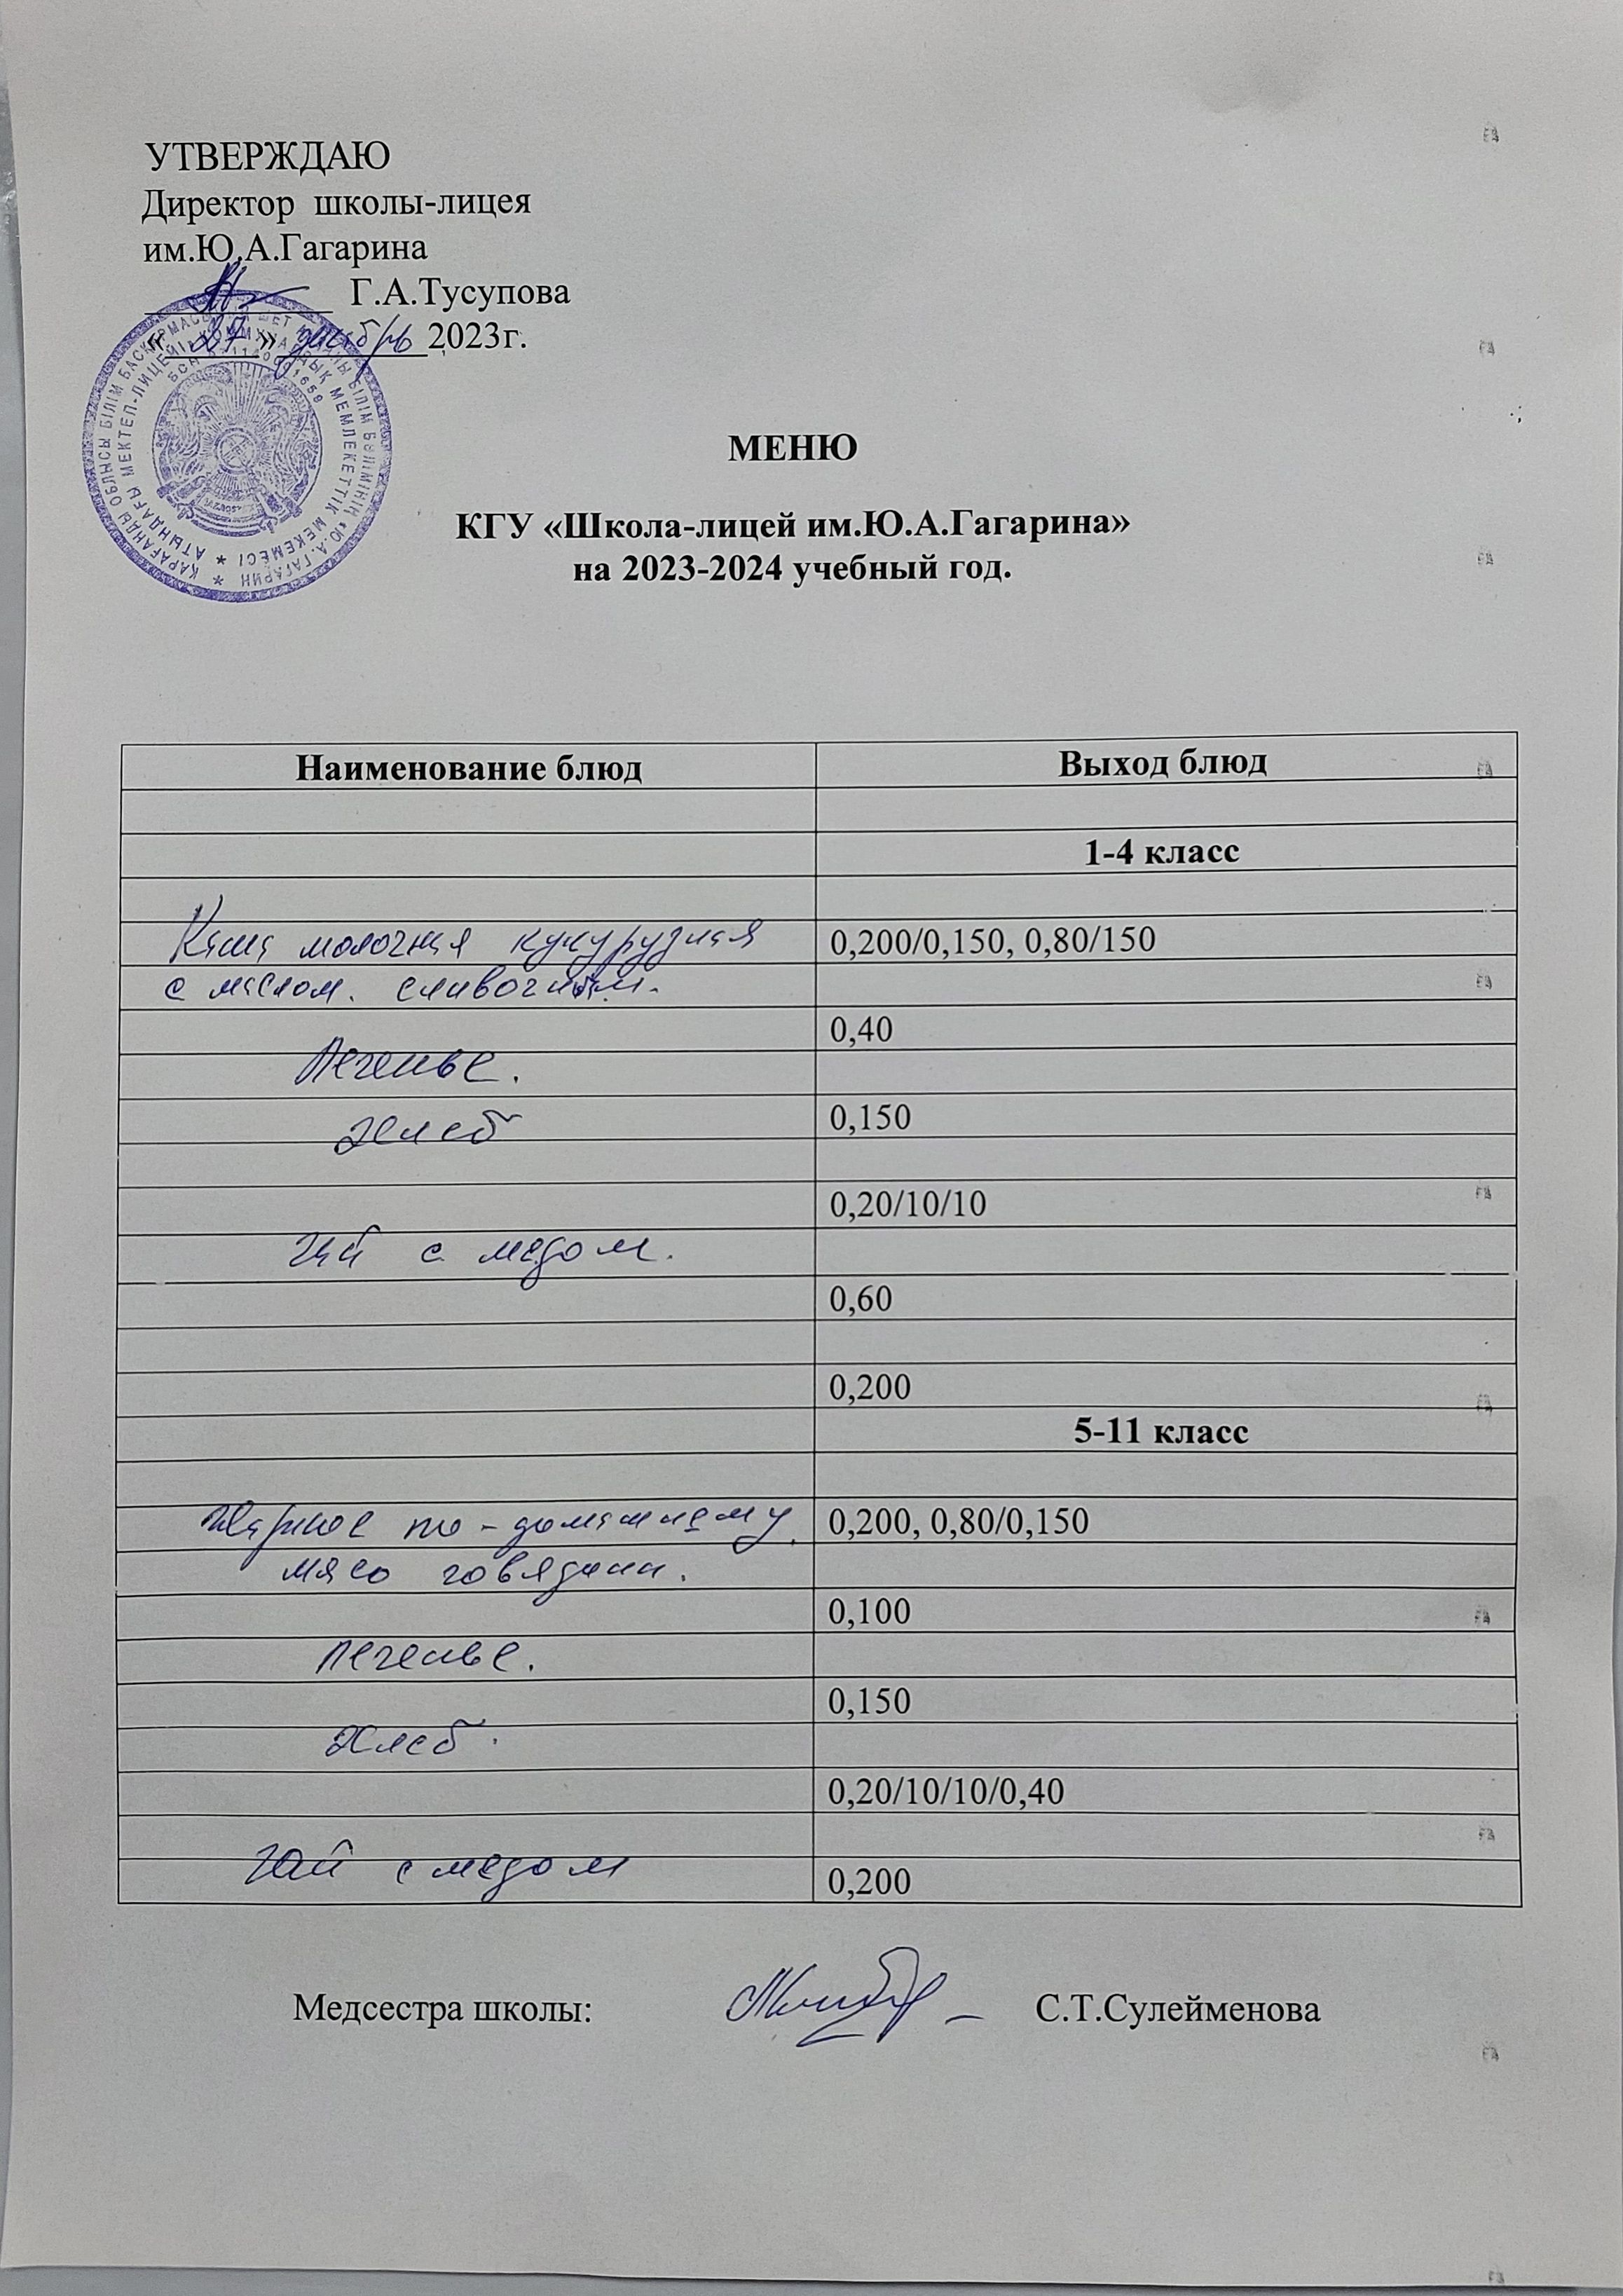 УТВЕРЖДАЮ
Директор школы-лицея
им.Ю.А.Гагарина
Г.А.Тусупова
« 27 » декабрь 2023г.
МЕНЮ
КГУ «Школа-лицей им.Ю.А.Гагарина»
на 2023-2024 учебный год.
Наименование блюд Выход блюд
1-4 класс
Каша молочная кукурузная 0,200/0,150, 0,80/150
с маслом. сливочным.
0,40
Печенье.
Хлеб 0,150
0,20/10/10
Чай с медом.
0,60
0,200
5-11 класс
Жаркое по-домашнему, 0,200, 0,80/0,150
мясо говядина.
0,100
Печенье.
0,150
Хлеб.
0,20/10/10/0,40
Чай с медом
0,200
Медсестра школы: С.Т.Сулейменова